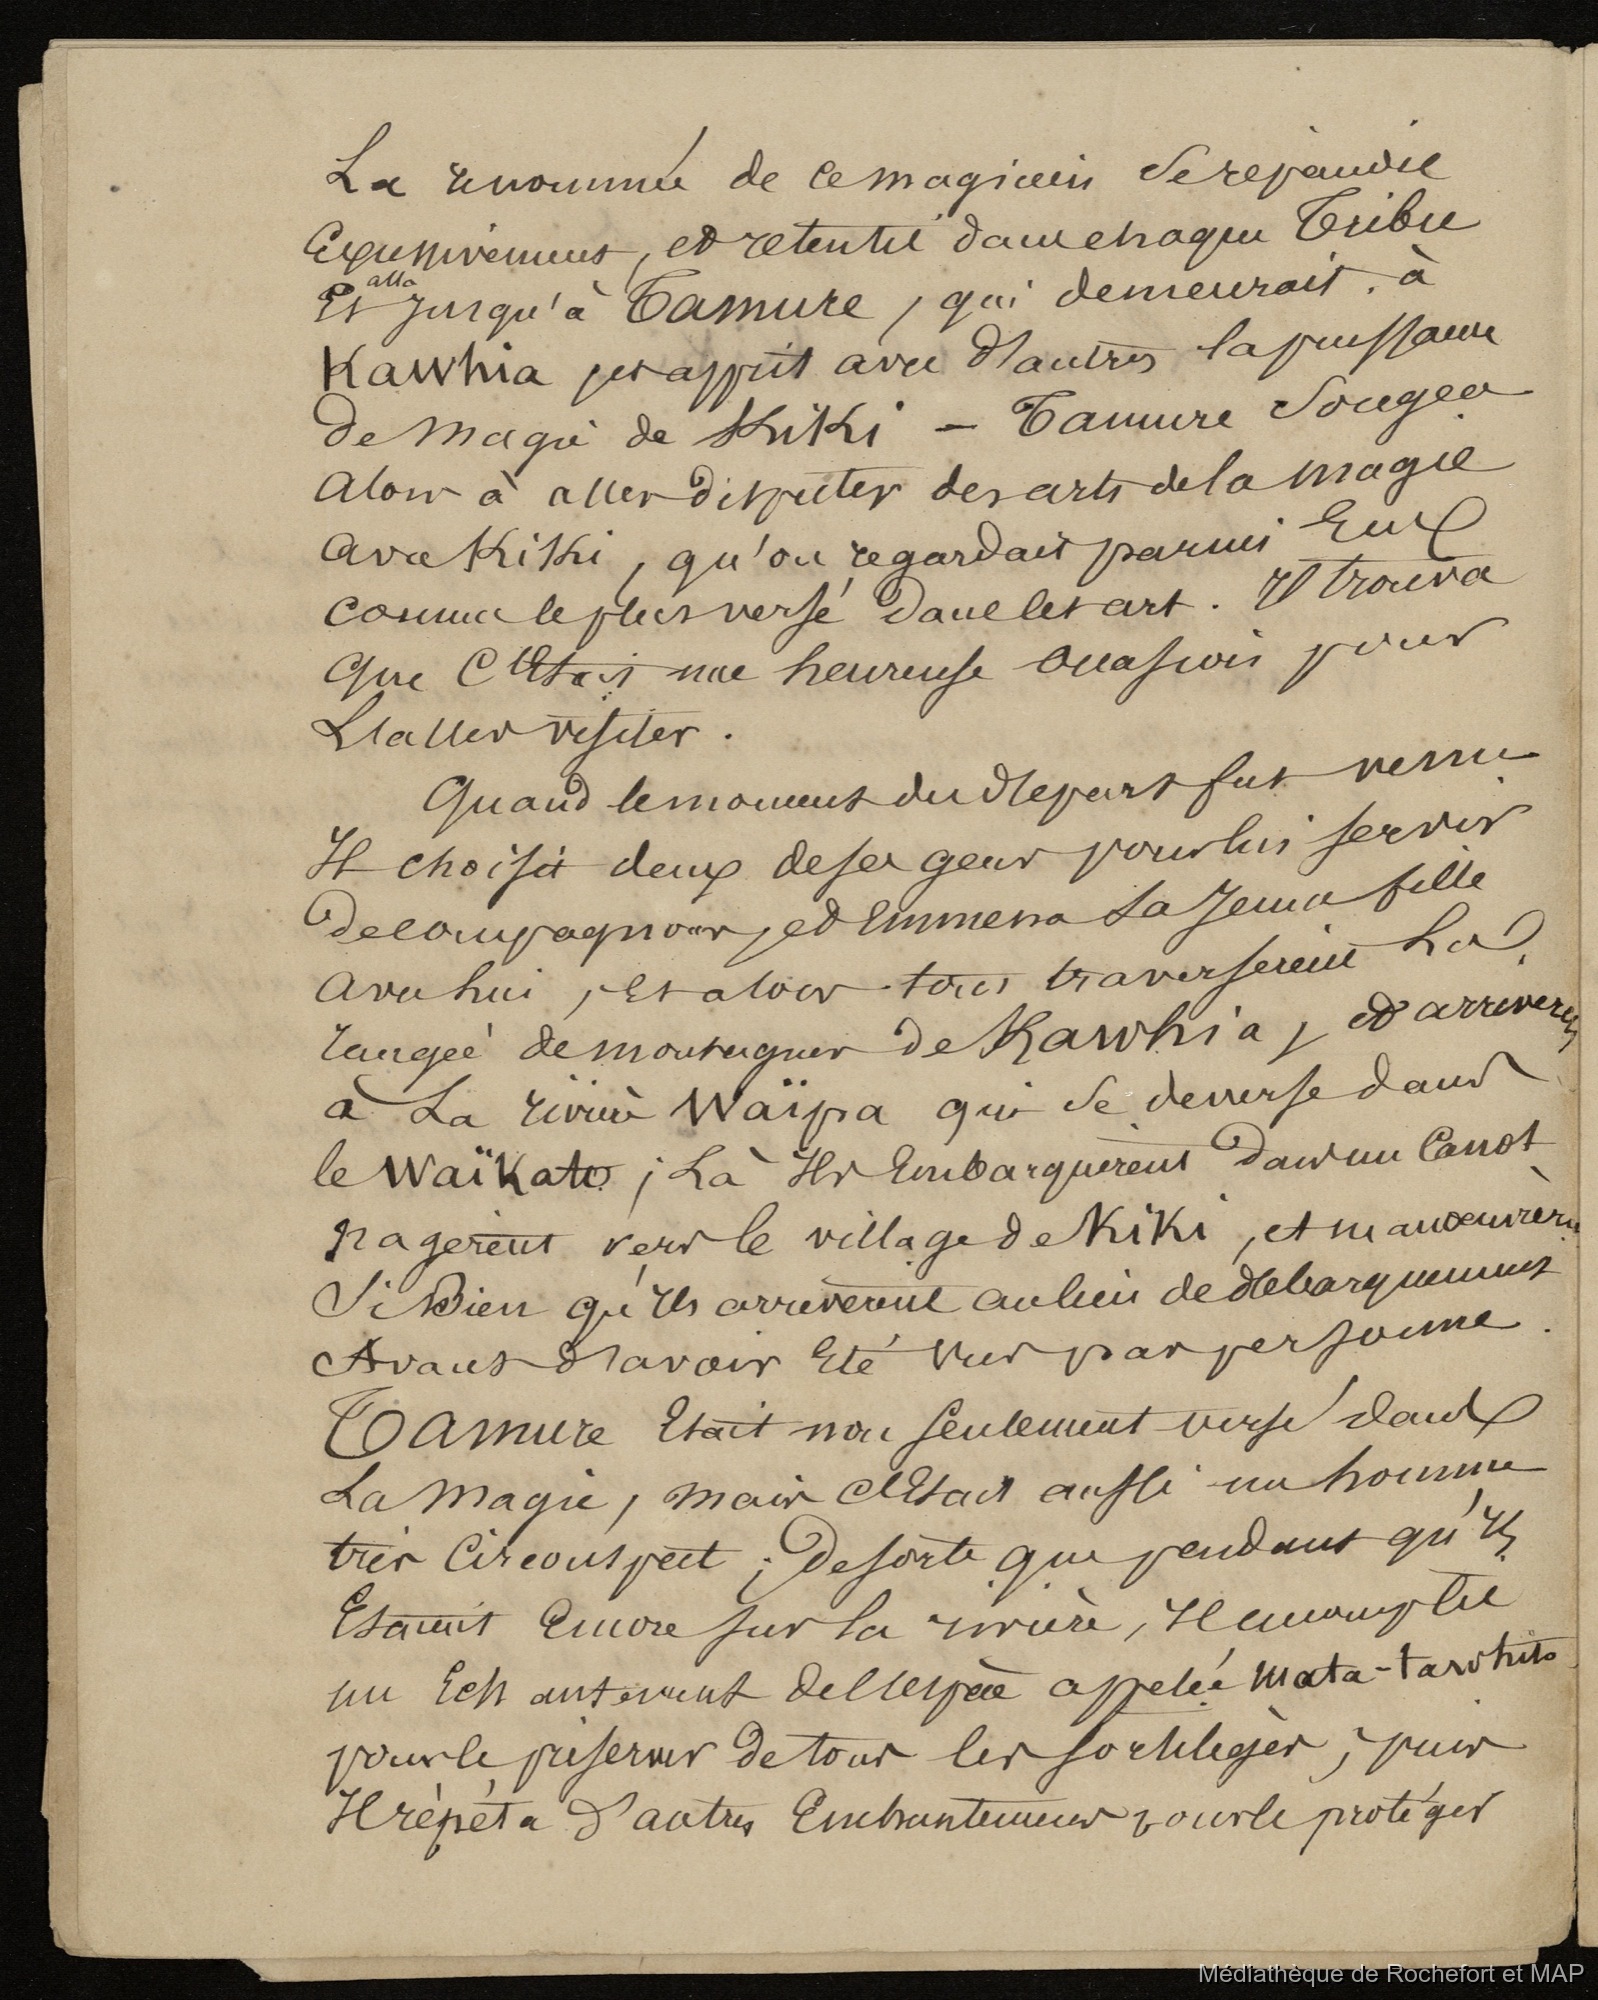 La renommée de ce magicien se repandit
Excessivement, et retentit dans chaque Tribu
Et alla jusqu'à Tamure, qui demeurait à
Kawhia, et apprit avec d'autres la puissance
De Magie de KiKi – Tamure Songea
Alors à aller disputer des arts de la magie
Avec KiKi, qu'on regardait parmi Eux
comme le plus versé Dans les art. Il trouva
Que C'Etait une heureuse occasion pour
L'aller visiter.
Quand le moment du départ fut venu
Il choisit deux de ses gens pour lui servir
De compagnons, et Emmena sa jeune fille
Avec lui, Et alors tous traverserent La
rangée de montagnes de Kawhia, et arriverent
à La rivière Waïpa qui se deverse dans
le Waïkato ; Là Ils Embarquèrent Dans un Canot
nagerent vers le village de KiKi, et manoeuvrèrent
Si Bien qu'Ils arrivèrent au lieu de débarquement
Avant d'avoir Eté Vus par personne.
TAmure Etait non seulement versé dans
La Magie, mais c'Etait aussi un homme
très Circonspect ; De sorte que pendant qu'Ils
Etaient Encore sur la rivière, Il accomplit
un Echantement de l'espèce appelée Mata-tawhito
pour le préserver De tous les sortilèges ; puis
Il répéta d'autres Enchantements pour le protéger
Médiathèque de Rochefort et MAP